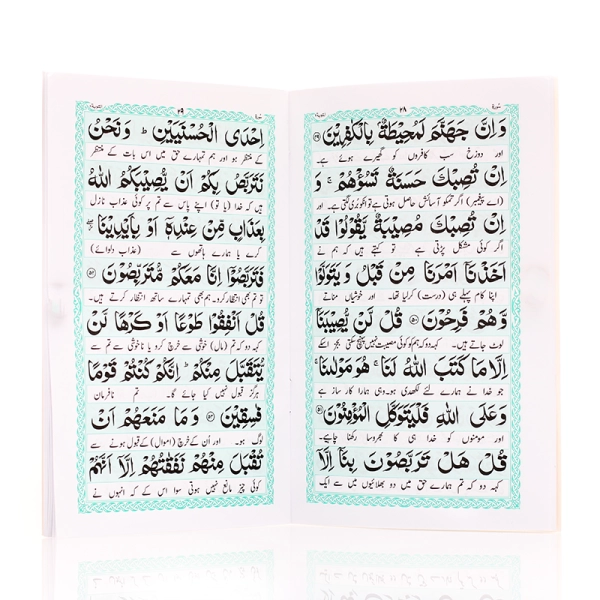 ٢٨
وَ اِنَّ جَهَنَّمَ لَمُحِيْطَةٌۢ بِالْكٰفِرِيْنَ ۝٤٩
اور دوزخ سب کافروں کو گھیرے ہوئے ہے۔
اِنْ تُصِبْكَ حَسَنَةٌ تَسُؤْهُمْ ۚ وَ
(اے پیغمبر) اگر تم کو آسائش حاصل ہوتی ہے تو انکو بُری لگتی ہے۔ اور
اِنْ تُصِبْكَ مُصِيْبَةٌ يَّقُوْلُوْا قَدْ
اگر کوئی مشکل پڑتی ہے تو کہتے ہیں کہ ہم نے
اَخَذْنَاۤ اَمْرَنَا مِنْ قَبْلُ وَ يَتَوَلَّوْا
اپنا کام پہلے ہی (درست) کرلیا تھا۔ اور خوشیاں مناتے
وَّ هُمْ فَرِحُوْنَ ۝٥٠ قُلْ لَّنْ يُّصِيْبَنَاۤ
لوٹ جاتے ہیں۔ کہہ دو کہ ہم کو کوئی مصیبت نہیں پہنچ سکتی بجز اسکے
اِلَّا مَا كَتَبَ اللّٰهُ لَنَا ۚ هُوَ مَوْلٰىنَا ۚ
جو خدا نے ہمارے لئے لکھدی ہو۔ وہی ہمارا کار ساز ہے
وَ عَلَى اللّٰهِ فَلْيَتَوَكَّلِ الْمُؤْمِنُوْنَ ۝٥١
اور مومنوں کو خدا ہی کا بھروسا رکھنا چاہیے۔
قُلْ هَلْ تَرَبَّصُوْنَ بِنَاۤ اِلَّاۤ
کہہ دو کہ تم ہمارے حق میں دو بھلائیوں میں سے ایک
٢٩
اِحْدَى الْحُسْنَيَيْنِ ؕ وَ نَحْنُ
کے منتظر ہو اور ہم تمہارے حق میں اس بات کے منتظر
نَتَرَبَّصُ بِكُمْ اَنْ يُّصِيْبَكُمُ اللّٰهُ
ہیں کہ خدا (یا تو) اپنے پاس سے تم پر کوئی عذاب نازل
بِعَذَابٍ مِّنْ عِنْدِهٖۤ اَوْ بِاَيْدِيْنَا ۖ
کرے یا ہمارے ہاتھوں سے (عذاب دلوائے)
فَتَرَبَّصُوْۤا اِنَّا مَعَكُمْ مُّتَرَبِّصُوْنَ ۝٥٢
تو تم بھی انتظار کرو۔ ہم بھی تمہارے ساتھ انتظار کرتے ہیں۔
قُلْ اَنْفِقُوْا طَوْعًا اَوْ كَرْهًا لَّنْ
کہہ دو کہ تم (مال) خوشی سے خرچ کرو یا ناخوشی سے تم سے
يُّتَقَبَّلَ مِنْكُمْ ؕ اِنَّكُمْ كُنْتُمْ قَوْمًا
ہرگز قبول نہیں کیا جائے گا۔ تم نافرمان
فٰسِقِيْنَ ۝٥٣ وَ مَا مَنَعَهُمْ اَنْ
لوگ ہو۔ اور اُن کے خرچ (اموال) کے قبول ہونے سے
تُقْبَلَ مِنْهُمْ نَفَقٰتُهُمْ اِلَّاۤ اَنَّهُمْ
کوئی چیز مانع نہیں ہوتی سوا اس کے کہ انہوں نے